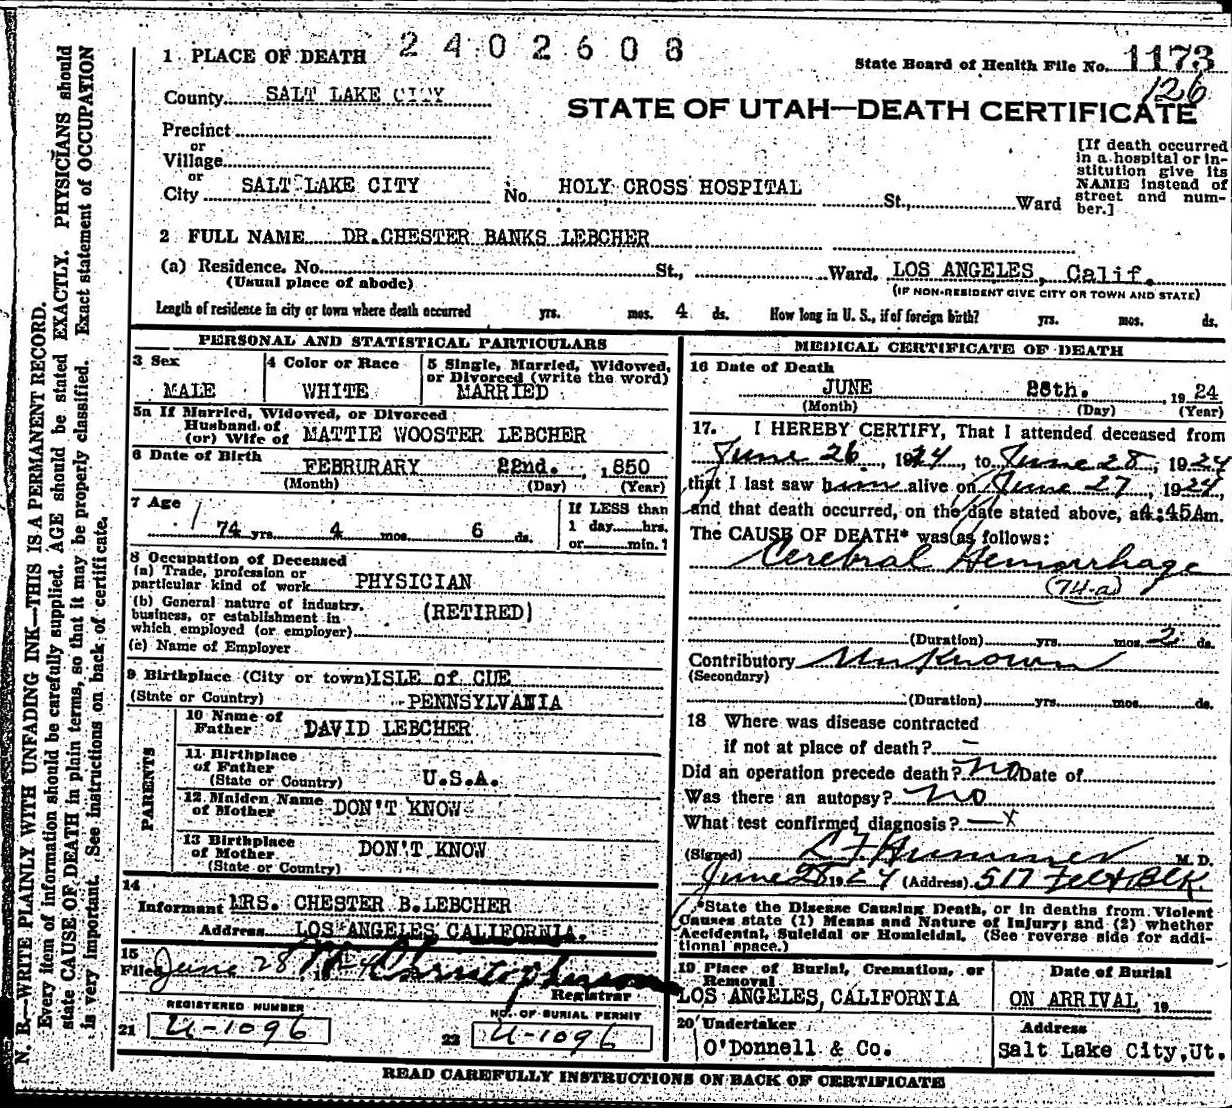 2402608
1 PLACE OF DEATH
State Board of Health File No. 1173
126
County SALT LAKE CITY
STATE OF UTAH—DEATH CERTIFICATE
Precinct
or
Village
or
City SALT LAKE CITY No. HOLY CROSS HOSPITAL St., Ward
[If death occurred in a hospital or institution give its NAME instead of street and number.]
2 FULL NAME DR. CHESTER BANKS LEBCHER
(a) Residence. No. St., Ward. LOS ANGELES, Calif.
(Usual place of abode) (IF NON-RESIDENT GIVE CITY OR TOWN AND STATE)
Length of residence in city or town where death occurred yrs. mos. 4 ds. How long in U. S., if of foreign birth? yrs. mos. ds.
PERSONAL AND STATISTICAL PARTICULARS
3 Sex
MALE
4 Color or Race
WHITE
5 Single, Married, Widowed,
or Divorced (write the word)
MARRIED
5a If Married, Widowed, or Divorced
Husband of
(or) Wife of MATTIE WOOSTER LEBCHER
6 Date of Birth
FEBRURARY 22nd. , 1850
(Month) (Day) (Year)
7 Age
74 yrs. 4 mos. 6 ds.
If LESS than
1 day......hrs.
or......min.?
8 Occupation of Deceased
(a) Trade, profession or
particular kind of work PHYSICIAN
(b) General nature of industry,
business, or establishment in (RETIRED)
which employed (or employer)
(c) Name of Employer
9 Birthplace (City or town) ISLE of CUE
(State or Country) PENNSYLVANIA
PARENTS
10 Name of
Father DAVID LEBCHER
11 Birthplace
of Father
(State or Country) U.S.A.
12 Maiden Name
of Mother DON'T KNOW
13 Birthplace
of Mother DON'T KNOW
(State or Country)
14
Informant MRS. CHESTER B. LEBCHER
Address LOS ANGELES CALIFORNIA.
15
Filed June 28 Christopherson
Registrar
REGISTERED NUMBER
21 U-1096
NO. OF BURIAL PERMIT
22 U-1096
MEDICAL CERTIFICATE OF DEATH
16 Date of Death
JUNE 28th. , 19 24
(Month) (Day) (Year)
17. I HEREBY CERTIFY, That I attended deceased from
June 26, 1924, to June 28, 1924
that I last saw him alive on June 27, 1924,
and that death occurred, on the date stated above, at 4:45Am.
The CAUSE OF DEATH* was as follows:
Cerebral Hemorrhage
(74-a)
(Duration) yrs. mos. 2 ds.
Contributory Unknown
(Secondary)
(Duration) yrs. mos. ds.
18 Where was disease contracted
if not at place of death? –
Did an operation precede death? no Date of
Was there an autopsy? no
What test confirmed diagnosis? — x
(Signed) L. F. Hummer M. D.
June 28 1924 (Address) 517 Felt Blk
*State the Disease Causing Death, or in deaths from Violent
Causes state (1) Means and Nature of Injury; and (2) whether
Accidental, Suicidal or Homicidal. (See reverse side for addi-
tional space.)
19 Place of Burial, Cremation, or
Removal
LOS ANGELES, CALIFORNIA
Date of Burial
ON ARRIVAL, 19
20 Undertaker
O'Donnell & Co.
Address
Salt Lake City, Ut.
READ CAREFULLY INSTRUCTIONS ON BACK OF CERTIFICATE
N. B.—WRITE PLAINLY WITH UNFADING INK—THIS IS A PERMANENT RECORD.
Every item of information should be carefully supplied. AGE should be stated EXACTLY. PHYSICIANS should
state CAUSE OF DEATH in plain terms, so that it may be properly classified. Exact statement of OCCUPATION
is very important. See instructions on back of certificate.